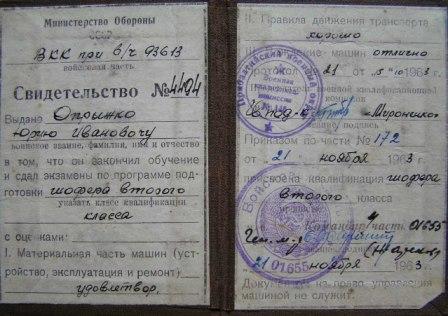 Министерство Обороны
СССР
ВКК при в/ч 93613
войсковая часть
Свидетельство №4494
Выдано Опрышко
Юрию Ивановичу
воинское звание, фамилия, имя и отчество
в том, что он закончил обучение
и сдал экзамены по программе под-
готовки шофера второго
указать класс квалификации
класса
с оценками:
I. Материальная часть машин (ус-
тройство, эксплуатация и ремонт)
удовлетвор.
II. Правила движения транспорта
хорошо
машин отлично
протокол 21 "5" 10 1963
квалификационной
комиссии
Мироненко
звание подпись
Приказом по части № 172
от 21 ноября 1963 г.
присвоена квалификация шофера
второго класса
Командир части 01655
Ген. м.
21 ноября 1963 г.
01655
Документом на право управления
машиной не служит.